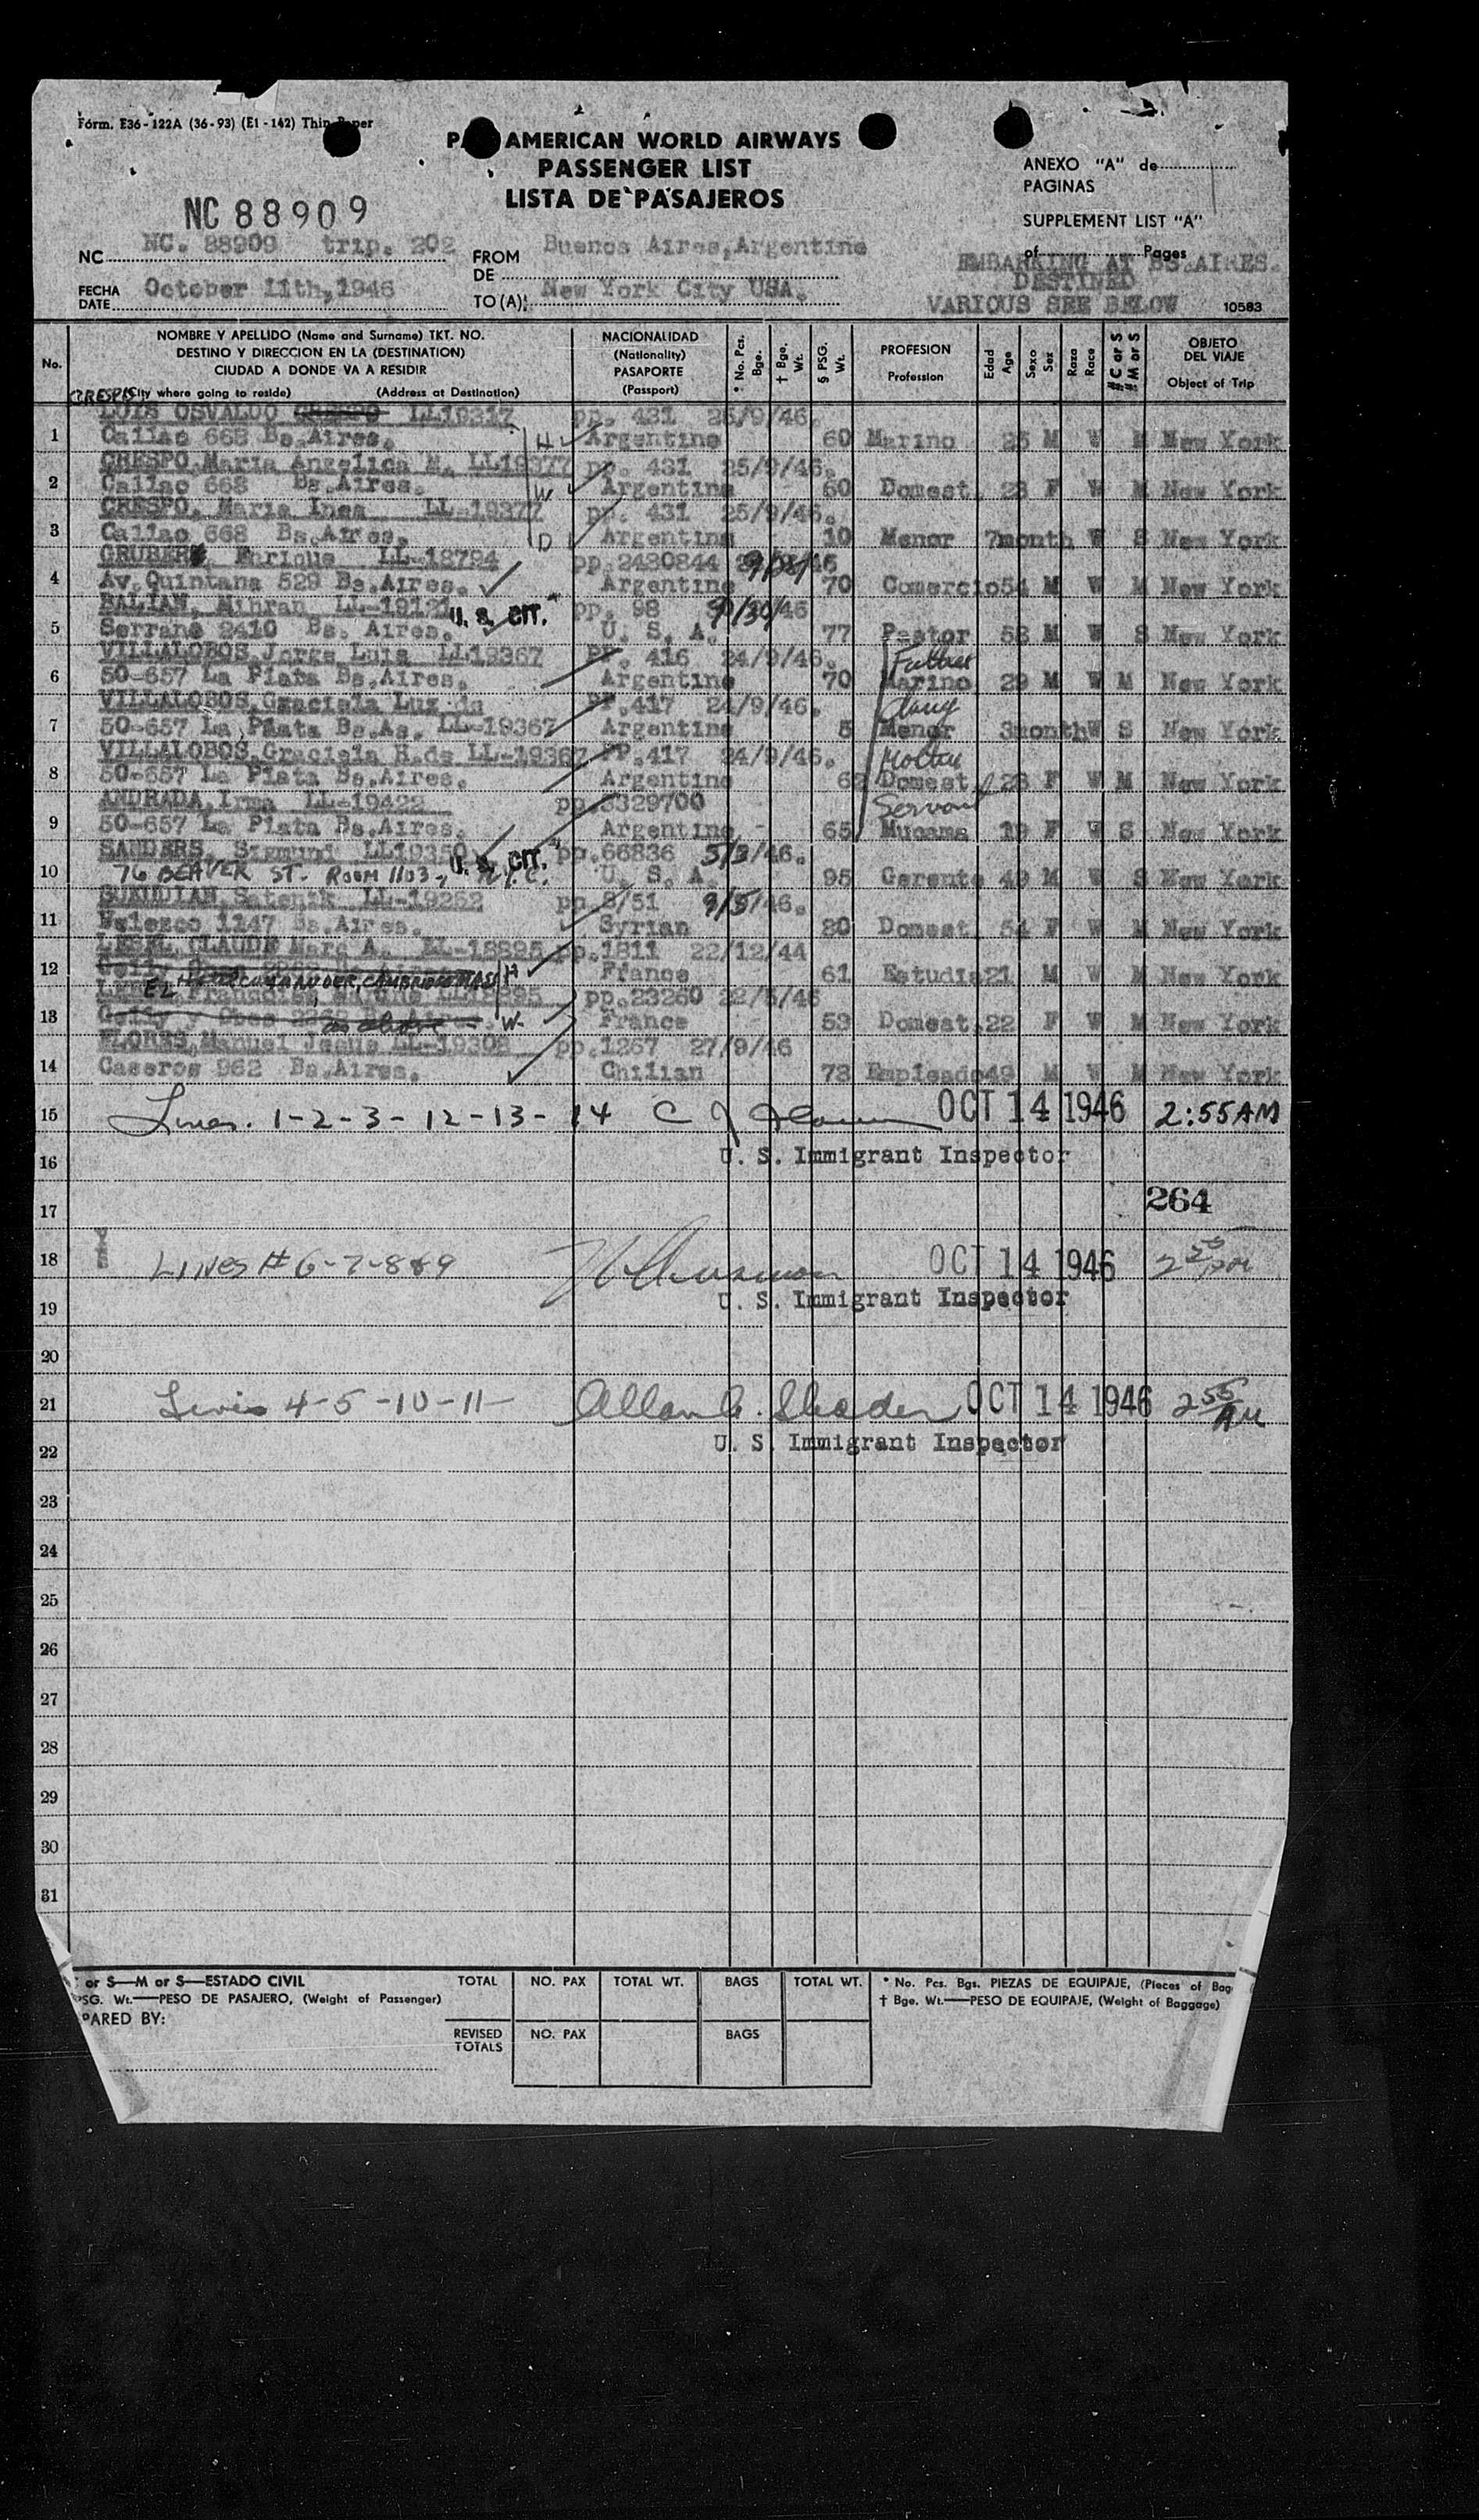 Form. E36-122A (36-93) (E1-142) Thin Paper
AMERICAN WORLD AIRWAYS
PASSENGER LIST
LISTA DE PASAJEROS
ANEXO "A" de
PAGINAS
SUPPLEMENT LIST "A"
of Pages
NC 88909
NC NC. 88909 trip. 202
FROM DE Buenos Aires, Argentine
EMBARKING AT BS.AIRES.
DESTINED
FECHA DATE October 11th, 1946
TO (A): New York City USA.
VARIOUS SEE BELOW 10583
No. NOMBRE Y APELLIDO (Name and Surname) TKT. NO.
DESTINO Y DIRECCION EN LA (DESTINATION)
CIUDAD A DONDE VA A RESIDIR
(City where going to reside) (Address at Destination)
NACIONALIDAD (Nationality) PASAPORTE (Passport)
* No. Pcs. Bge. † Bge. Wt. § PSG. Wt. PROFESION Profession Edad Age Sexo Sex Raza Race # C or S # M or S OBJETO DEL VIAJE Object of Trip
CRESPO
LUIS OSVALDO CRESPO LL19317 pp. 431 25/9/46.
1 Callao 668 Bs.Aires. H Argentine 60 Marino 25 M W M New York
CRESPO, Maria Angelica M. LL19377 pp. 431 25/9/46.
2 Callao 668 Bs.Aires. W Argentine 60 Domest. 23 F W M New York
CRESPO, Maria Ines LL-19377 pp. 431 25/9/46.
3 Callao 668 Bs.Aires. D Argentine 10 Menor 7month W S New York
GRUBER, Enrique LL-18794 pp.2430844
4 Av.Quintana 529 Bs.Aires. Argentine 70 Comercio 54 M W M New York
BALIAN, Mihran LL-19121 U. S. CIT. pp. 98 9/30/46
5 Serrano 2410 Bs. Aires. U. S. A. 77 Pastor 58 M W S New York
VILLALOBOS, Jorge Luis LL19367 PP. 416 24/9/46. Father
6 50-657 La Plata Bs.Aires. Argentine 70 Marino 29 M W M New York
VILLALOBOS, Graciela Luz de PP.417 24/9/46. daug
7 50-657 La Plata Bs.As. LL-19367 Argentine 5 Menor 3month W S New York
VILLALOBOS, Graciela H.de LL-19367 PP.417 24/9/46. Mother
8 50-657 La Plata Bs.Aires. Argentine Domest 28 F W M New York
ANDRADA, Irma LL-19422 pp.3329700 Servant
9 50-657 La Plata Bs.Aires. Argentine 65 Mucama 19 F W S New York
SANDERS, Sigmund LL19350 U. S. CIT. pp.66836 5/3/46.
10 76 BEAVER ST. ROOM 1103, N.Y.C. U. S. A. 95 Gerente 49 M W S New York
Satenik LL-19252 pp.8/51 9/5/46.
11 Velazco 1147 Bs.Aires. Syrian 80 Domest. 54 F W M New York
LEBEL, CLAUDE Marc A. LL-18895 pp.1811 22/12/44
12 COMMANDER, CAMBRIDGE MASS H France 61 Estudia 21 M W M New York
LL18895 pp.23260 22/5/46
13 Gelly y Obes 2263 Bs.Aires. as above W. France 53 Domest. 22 F W M New York
FLORES, Manuel Jesus LL-19308 pp.1267 27/9/46
14 Caseros 962 Bs.Aires. Chilian 73 Empleado 49 M W M New York
15 Lines. 1-2-3-12-13-14 OCT 14 1946 2:55AM
16 U. S. Immigrant Inspector
17 264
18 LINES # 6-7-8&9 OCT 14 1946
19 U. S. Immigrant Inspector
20
21 Lines 4-5-10-11- Allan G. Shader OCT 14 1946 2 55 AM
22 U. S. Immigrant Inspector
23
24
25
26
27
28
29
30
31
or S—M or S—ESTADO CIVIL
SG. Wt.—PESO DE PASAJERO, (Weight of Passenger)
PARED BY:
TOTAL NO. PAX TOTAL WT. BAGS TOTAL WT.
REVISED TOTALS NO. PAX BAGS
* No. Pcs. Bgs. PIEZAS DE EQUIPAJE, (Pieces of Bag
† Bge. Wt.—PESO DE EQUIPAJE, (Weight of Baggage)